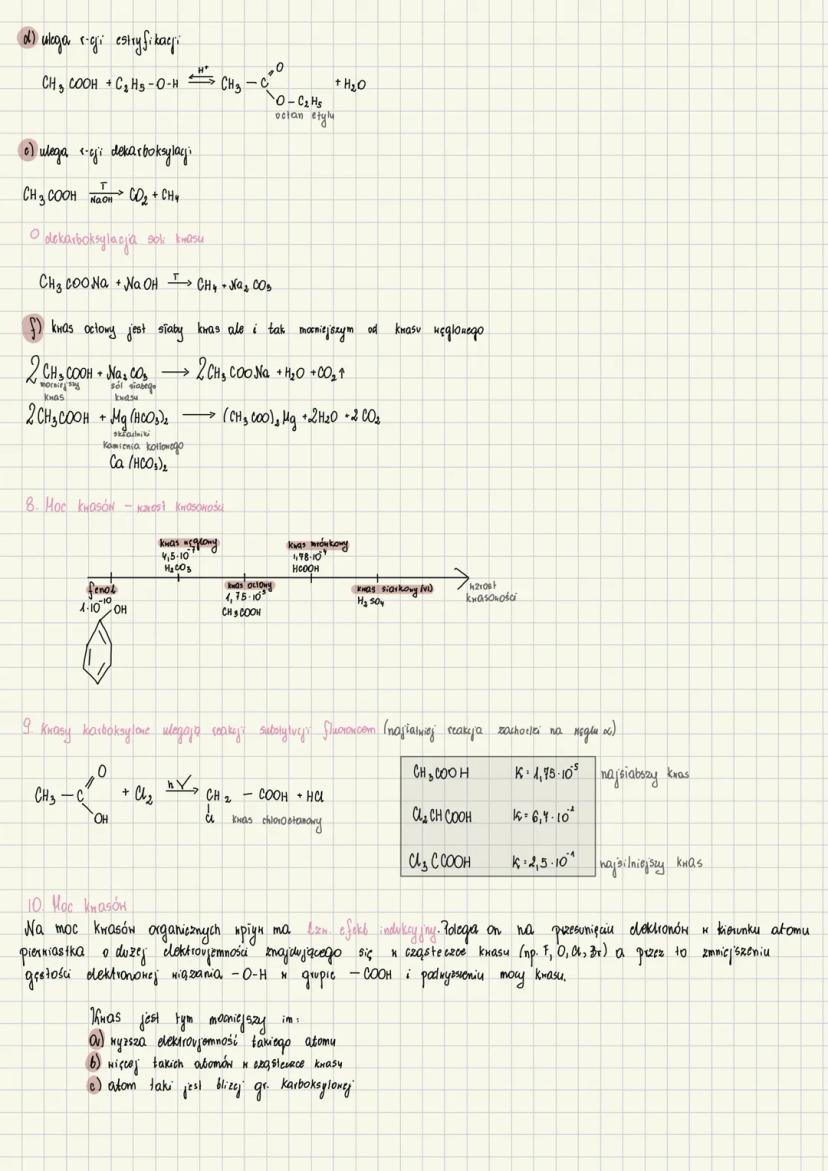 d) ulega r-cji estryfikacji
CH3 COOH + C2H5-O-H ⇌ H+ CH3 - C O O - C2H5 + H2O
octan etylu
e) ulega r-cji dekarboksylacji
CH3 COOH T NaOH → CO2 + CH4
dekarboksylacja soli kwasu
CH3 COONa + NaOH T → CH4 + Na2 CO3
f) kwas octowy jest słaby kwas ale i tak mocniejszym od kwasu węglowego
2CH3COOH + Na2 CO3 → 2CH3 COONa + H2O + CO2↑
mocniejszy kwas sól słabego kwasu
2CH3COOH + Mg(HCO3)2 → (CH3 COO)2 Mg + 2H2O + 2 CO2
składniki
kamienia kotłowego
Ca (HCO3)2
8. Moc kwasów - wzrost kwasowości
kwas węglowy kwas mrówkowy
4,5·10-7 1,78·10-4
H2CO3 HCOOH
fenol kwas octowy kwas siarkowy (VI) wzrost
1·10-10 1,75·10-5 H2 SO4 kwasowości
OH CH3COOH
9. Kwasy karboksylowe ulegają reakcji substytucji fluorowcem (najłatwiej reakcja zachodzi na węglu α)
CH3 - C O OH + Cl2 hV → CH2 - COOH + HCl
Cl kwas chlorooctanowy
CH3COOH K = 1,75·10-5 najsłabszy kwas
Cl2 CH COOH K = 6,4·10-2
Cl3 C COOH K = 2,5·10-1 najsilniejszy kwas
10. Moc kwasów
Na moc kwasów organicznych wpływ ma tzw. efekt indukcyjny. Polega on na przesunięciu elektronów w kierunku atomu
pierwiastka o dużej elektroujemności znajdującego się w cząsteczce kwasu (np. F, O, Cl, Br) a przez to zmniejszeniu
gęstości elektronowej wiązania -O-H w grupie -COOH i podwyższeniu mocy kwasu.
Kwas jest tym mocniejszy im:
a) wyższa elektroujemność takiego atomu
b) więcej takich atomów w cząsteczce kwasu
c) atom taki jest bliżej gr. karboksylowej